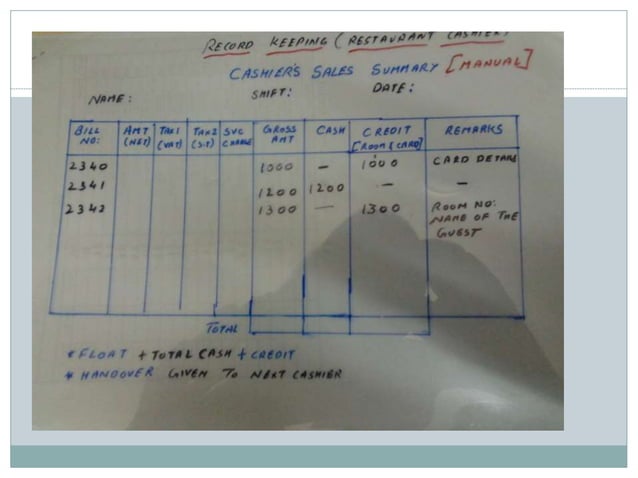 RECORD KEEPING (RESTAURANT CASHIER)
CASHIER'S SALES SUMMARY [MANUAL]
NAME: SHIFT: DATE:
BILL NO: AMT (NET) TAX1 (VAT) TAX2 (S.T) SVC CHARGE GROSS AMT CASH CREDIT [ROOM & CARD] REMARKS
2340 1000 — 1000 CARD DETAILS
2341 1200 1200 — —
2342 1300 — 1300 ROOM NO:
NAME OF THE
GUEST
TOTAL
* FLOAT + TOTAL CASH + CREDIT
* HANDOVER GIVEN TO NEXT CASHIER